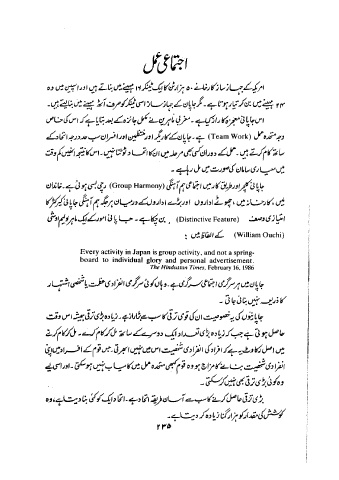 اجتماعی عمل
امریکہ کے جہاز ساز کارخانے ۵۰ ہزار ٹن کا ایک ٹینکر ۱۶ مہینے میں بناتے ہیں اور اسپین میں وہ
۲۴ مہینے میں بن کر تیار ہوتا ہے۔ مگر جاپان کے جہاز ساز اسی ٹینکر کو صرف آٹھ مہینے میں بنا لیتے ہیں۔
اس جاپانی معجزہ کا راز کیا ہے۔ مغربی ماہرین نے مکمل جائزہ کے بعد بتایا ہے کہ اس کی خاص
وجہ متحدہ عمل (Team Work) ہے۔ جاپان کے کاریگر اور منتظمین اور افسران سب حد درجہ اتحاد کے
ساتھ کام کرتے ہیں۔ عمل کے دوران کسی بھی مرحلہ میں ان کا اتحاد ٹوٹتا نہیں۔ اس کا نتیجہ انھیں کم وقت
میں معیاری سامان کی صورت میں مل رہا ہے۔
جاپانی کلچر اور طریق کار میں اجتماعی ہم آہنگی (Group Harmony) رچی بسی ہوئی ہے۔ خاندان
میں، کارخانہ میں، چھوٹے اداروں اور بڑے اداروں کے درمیان ہر جگہ ہم آہنگی جاپانی کیرکٹر کا
امتیازی وصف (Distinctive Feature) بن چکا ہے۔ جاپانی امور کے ایک ماہر ولیم اوشی
(William Ouchi) کے الفاظ میں :
Every activity in Japan is group activity, and not a spring-
board to individual glory and personal advertisement.
The Hindustan Times, February 16, 1986
جاپان میں ہر سرگرمی اجتماعی سرگرمی ہے۔ وہاں کوئی سرگرمی انفرادی عظمت یا شخصی اشتہار
کا ذریعہ نہیں بنائی جاتی۔
جاپانیوں کی یہ خصوصیت ان کی قومی ترقی کا سب سے بڑا راز ہے۔ زیادہ بڑی ترقی ہمیشہ اس وقت
حاصل ہوتی ہے جب کہ زیادہ بڑی تعداد ایک دوسرے کے ساتھ مل کر کام کرے۔ مل کر کام کرنے
میں اصل رکاوٹ یہ ہے کہ افراد کی انفرادی شخصیت اس میں نہیں ابھرتی۔ جس قوم کے افراد میں اپنی
انفرادی شخصیت بنانے کا مزاج ہو وہ قوم کبھی متحدہ عمل میں کامیاب نہیں ہو سکتی۔ اور اسی لیے
وہ کوئی بڑی ترقی بھی نہیں کر سکتی۔
بڑی ترقی حاصل کرنے کا سب سے آسان طریقہ اتحاد ہے۔ اتحاد ایک کو کئی بنا دیتا ہے، وہ
کوشش کی مقدار کو ہزار گنا زیادہ کر دیتا ہے۔
۲۳۵